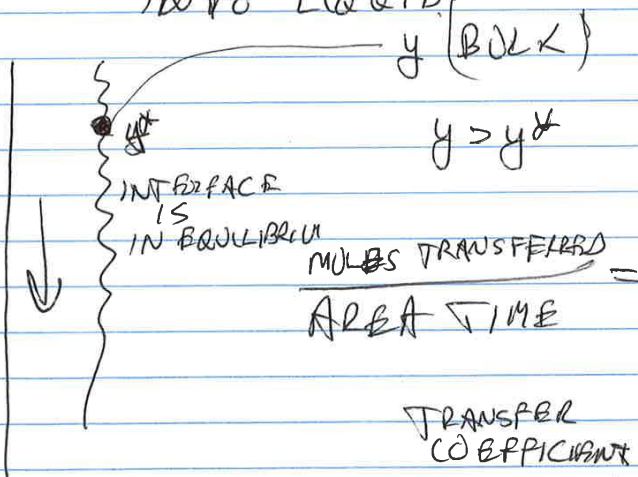 INTO LIQUID
y (BULK)
y*
y > y*
INTERFACE
IS
IN EQUILIBRIUM
MOLES TRANSFERRED =
AREA TIME
TRANSFER
COEFFICIENT